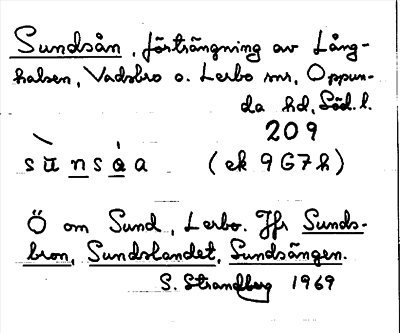 Sundsån, förträngning av Lång-
halsen, Vadsbro o. Lerbo snr, Oppun-
da hd, Söd. l.
209
sùnsa̍a (ek 9G7h)
Ö om Sund, Lerbo. Jfr Sunds-
bron, Sundslandet, Sundsängen.
S. Strandberg 1969